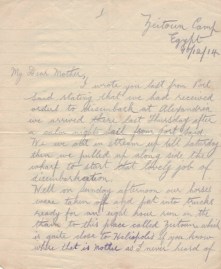 1
Zeitoun Camp
Egypt
9/12/14
My Dear Mother,
I wrote you last from Port
Said stating that we had received
orders to disembark at Alexandria
we arrived there last Thursday after
a calm night sail from port Said
We on till Saturday
then we pulled up along side the
wharf to start that lovely job of
disembarkation.
Well on Sunday afternoon our horses
were taken off and put into trucks
ready for an night run in the
train to this place called Zeitoun which
is quite close to Heliopolis if you know
where that is mother as I never heard of